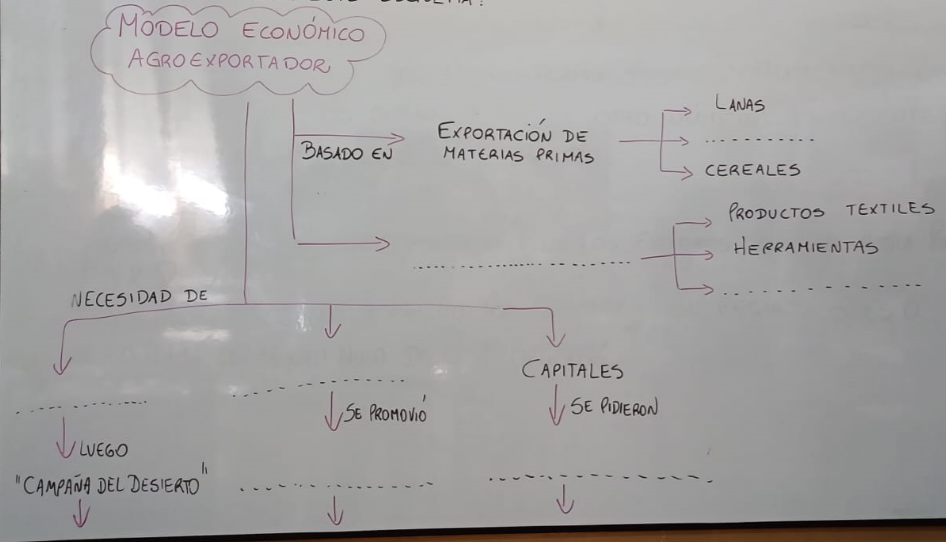 MODELO ECONÓMICO
AGROEXPORTADOR
BASADO EN
EXPORTACIÓN DE
MATERIAS PRIMAS
LANAS
..............
CEREALES
..............................
PRODUCTOS TEXTILES
HERRAMIENTAS
........................
NECESIDAD DE
..................
LUEGO
"CAMPAÑA DEL DESIERTO"
..................
SE PROMOVIÓ
........................
CAPITALES
SE PIDIERON
........................